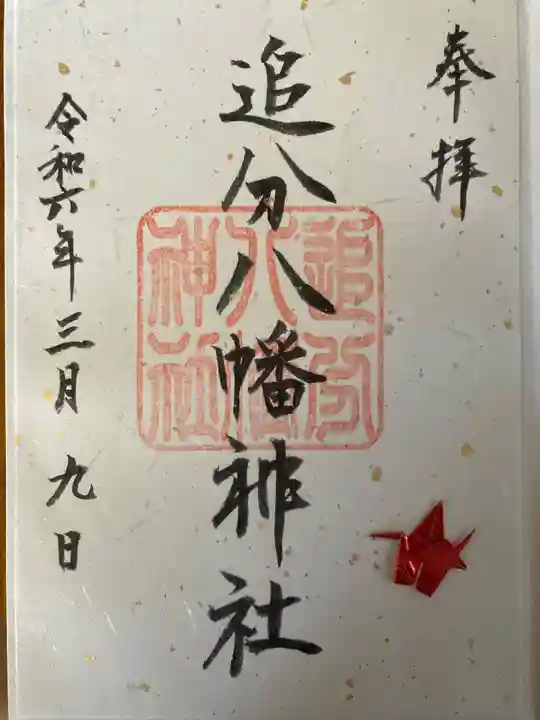 奉拝
追分八幡神社
追分八幡神社
令和六年三月九日